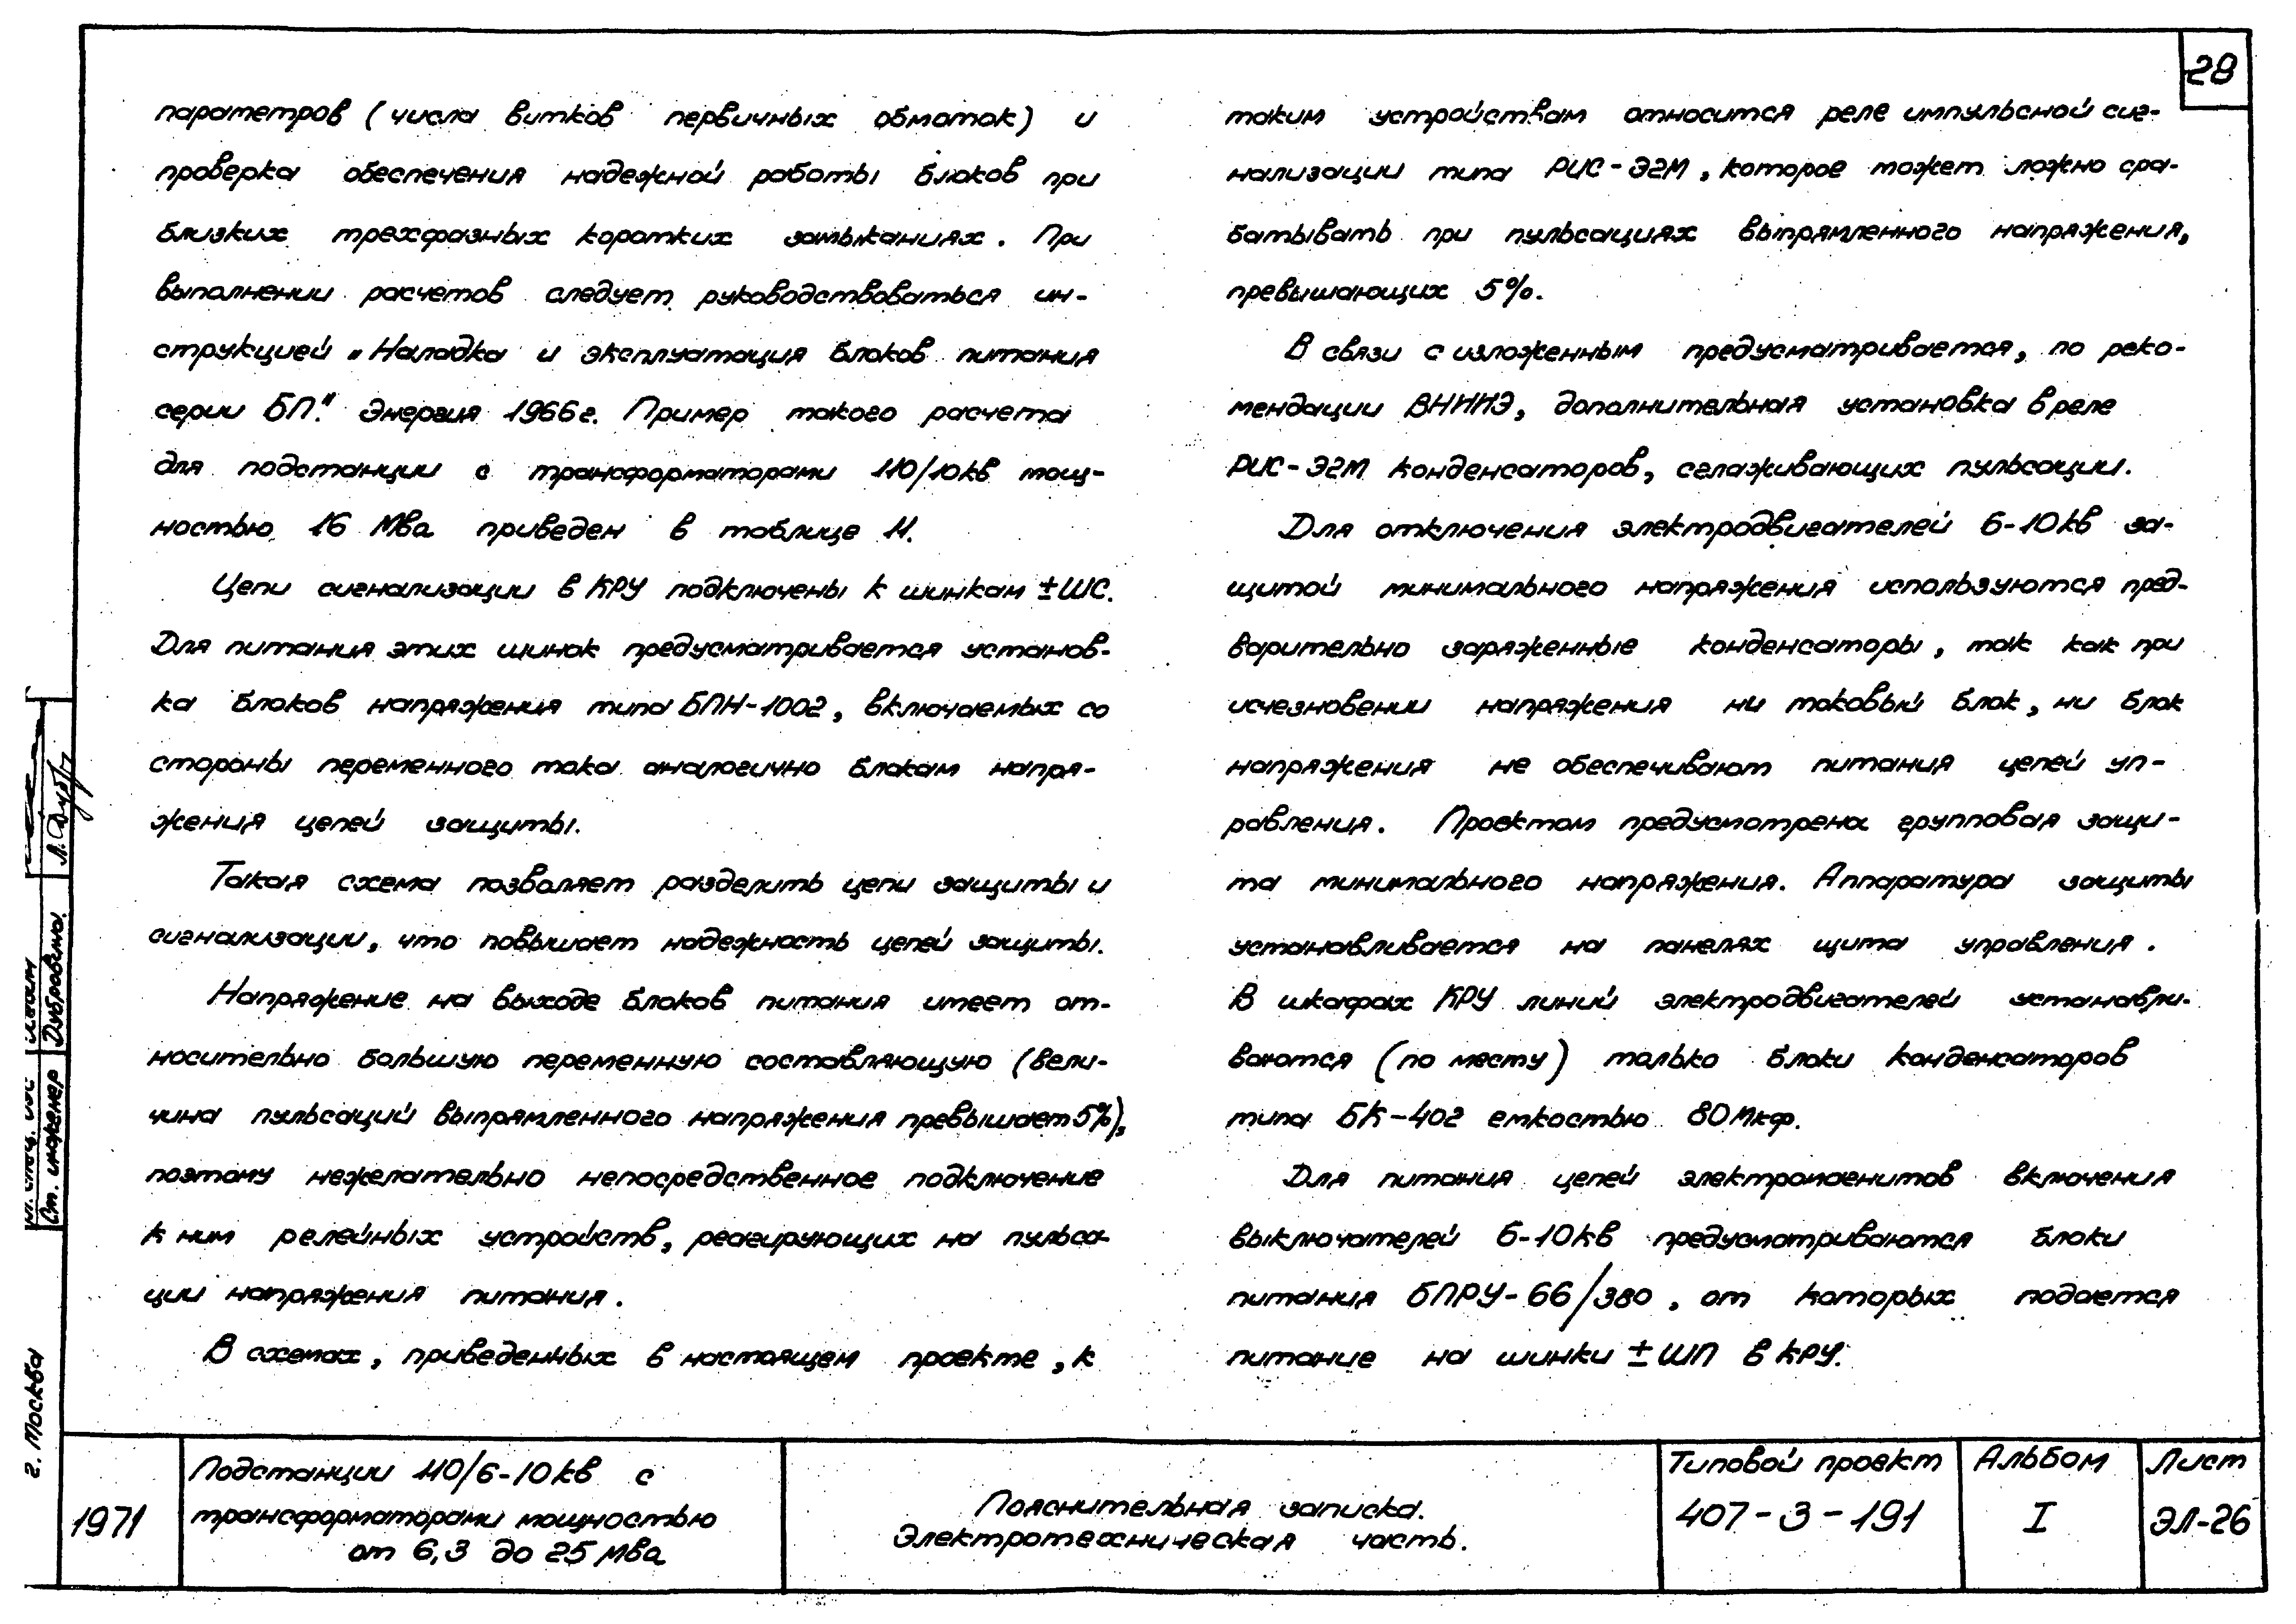 28
параметров (числа витков первичных обмоток) и
проверка обеспечения надежной работы блоков при
близких трехфазных коротких замыканиях. При
выполнении расчетов следует руководствоваться ин-
струкцией „Наладка и эксплуатация блоков питания
серии БП." Энергия 1966г. Пример такого расчета
для подстанции с трансформаторами 110/10кв мощ-
ностью 16 Мва приведен в таблице 11.
Цепи сигнализации в КРУ подключены к шинкам ±ШС.
Для питания этих шинок предусматривается установ-
ка блоков напряжения типа БПН-1002, включаемых со
стороны переменного тока аналогично блокам напря-
жения цепей защиты.
Такая схема позволяет разделить цепи защиты и
сигнализации, что повышает надежность цепей защиты.
Напряжение на выходе блоков питания имеет от-
носительно большую переменную составляющую (вели-
чина пульсаций выпрямленного напряжения превышает 5%),
поэтому нежелательно непосредственное подключение
к ним релейных устройств, реагирующих на пульса-
ции напряжения питания.
В схемах, приведенных в настоящем проекте, к
таким устройствам относится реле импульсной сиг-
нализации типа РИС-Э2М, которое может ложно сра-
батывать при пульсациях выпрямленного напряжения,
превышающих 5%.
В связи с изложенным предусматривается, по реко-
мендации ВНИИЭ, дополнительная установка в реле
РИС-Э2М конденсаторов, сглаживающих пульсации.
Для отключения электродвигателей 6-10кв за-
щитой минимального напряжения используются пред-
варительно заряженные конденсаторы, так как при
исчезновении напряжения ни токовый блок, ни блок
напряжения не обеспечивают питания цепей уп-
равления. Проектом предусмотрена групповая защи-
та минимального напряжения. Аппаратура защиты
устанавливается на панелях щита управления.
В шкафах КРУ линий электродвигателей устанавли-
ваются (по месту) только блоки конденсаторов
типа БК-402 емкостью 80 Мкф.
Для питания цепей электромагнитов включения
выключателей 6-10кв предусматриваются блоки
питания БПРУ-66/380, от которых подается
питание на шинки ±ШП в КРУ.
Ст. инженер Дубровина Л. Дуб
г. Москва
1971
Подстанции 110/6-10кв с
трансформаторами мощностью
от 6,3 до 25 мва
Пояснительная записка.
Электротехническая часть.
Типовой проект
407-3-191
Альбом
I
Лист
ЭЛ-26